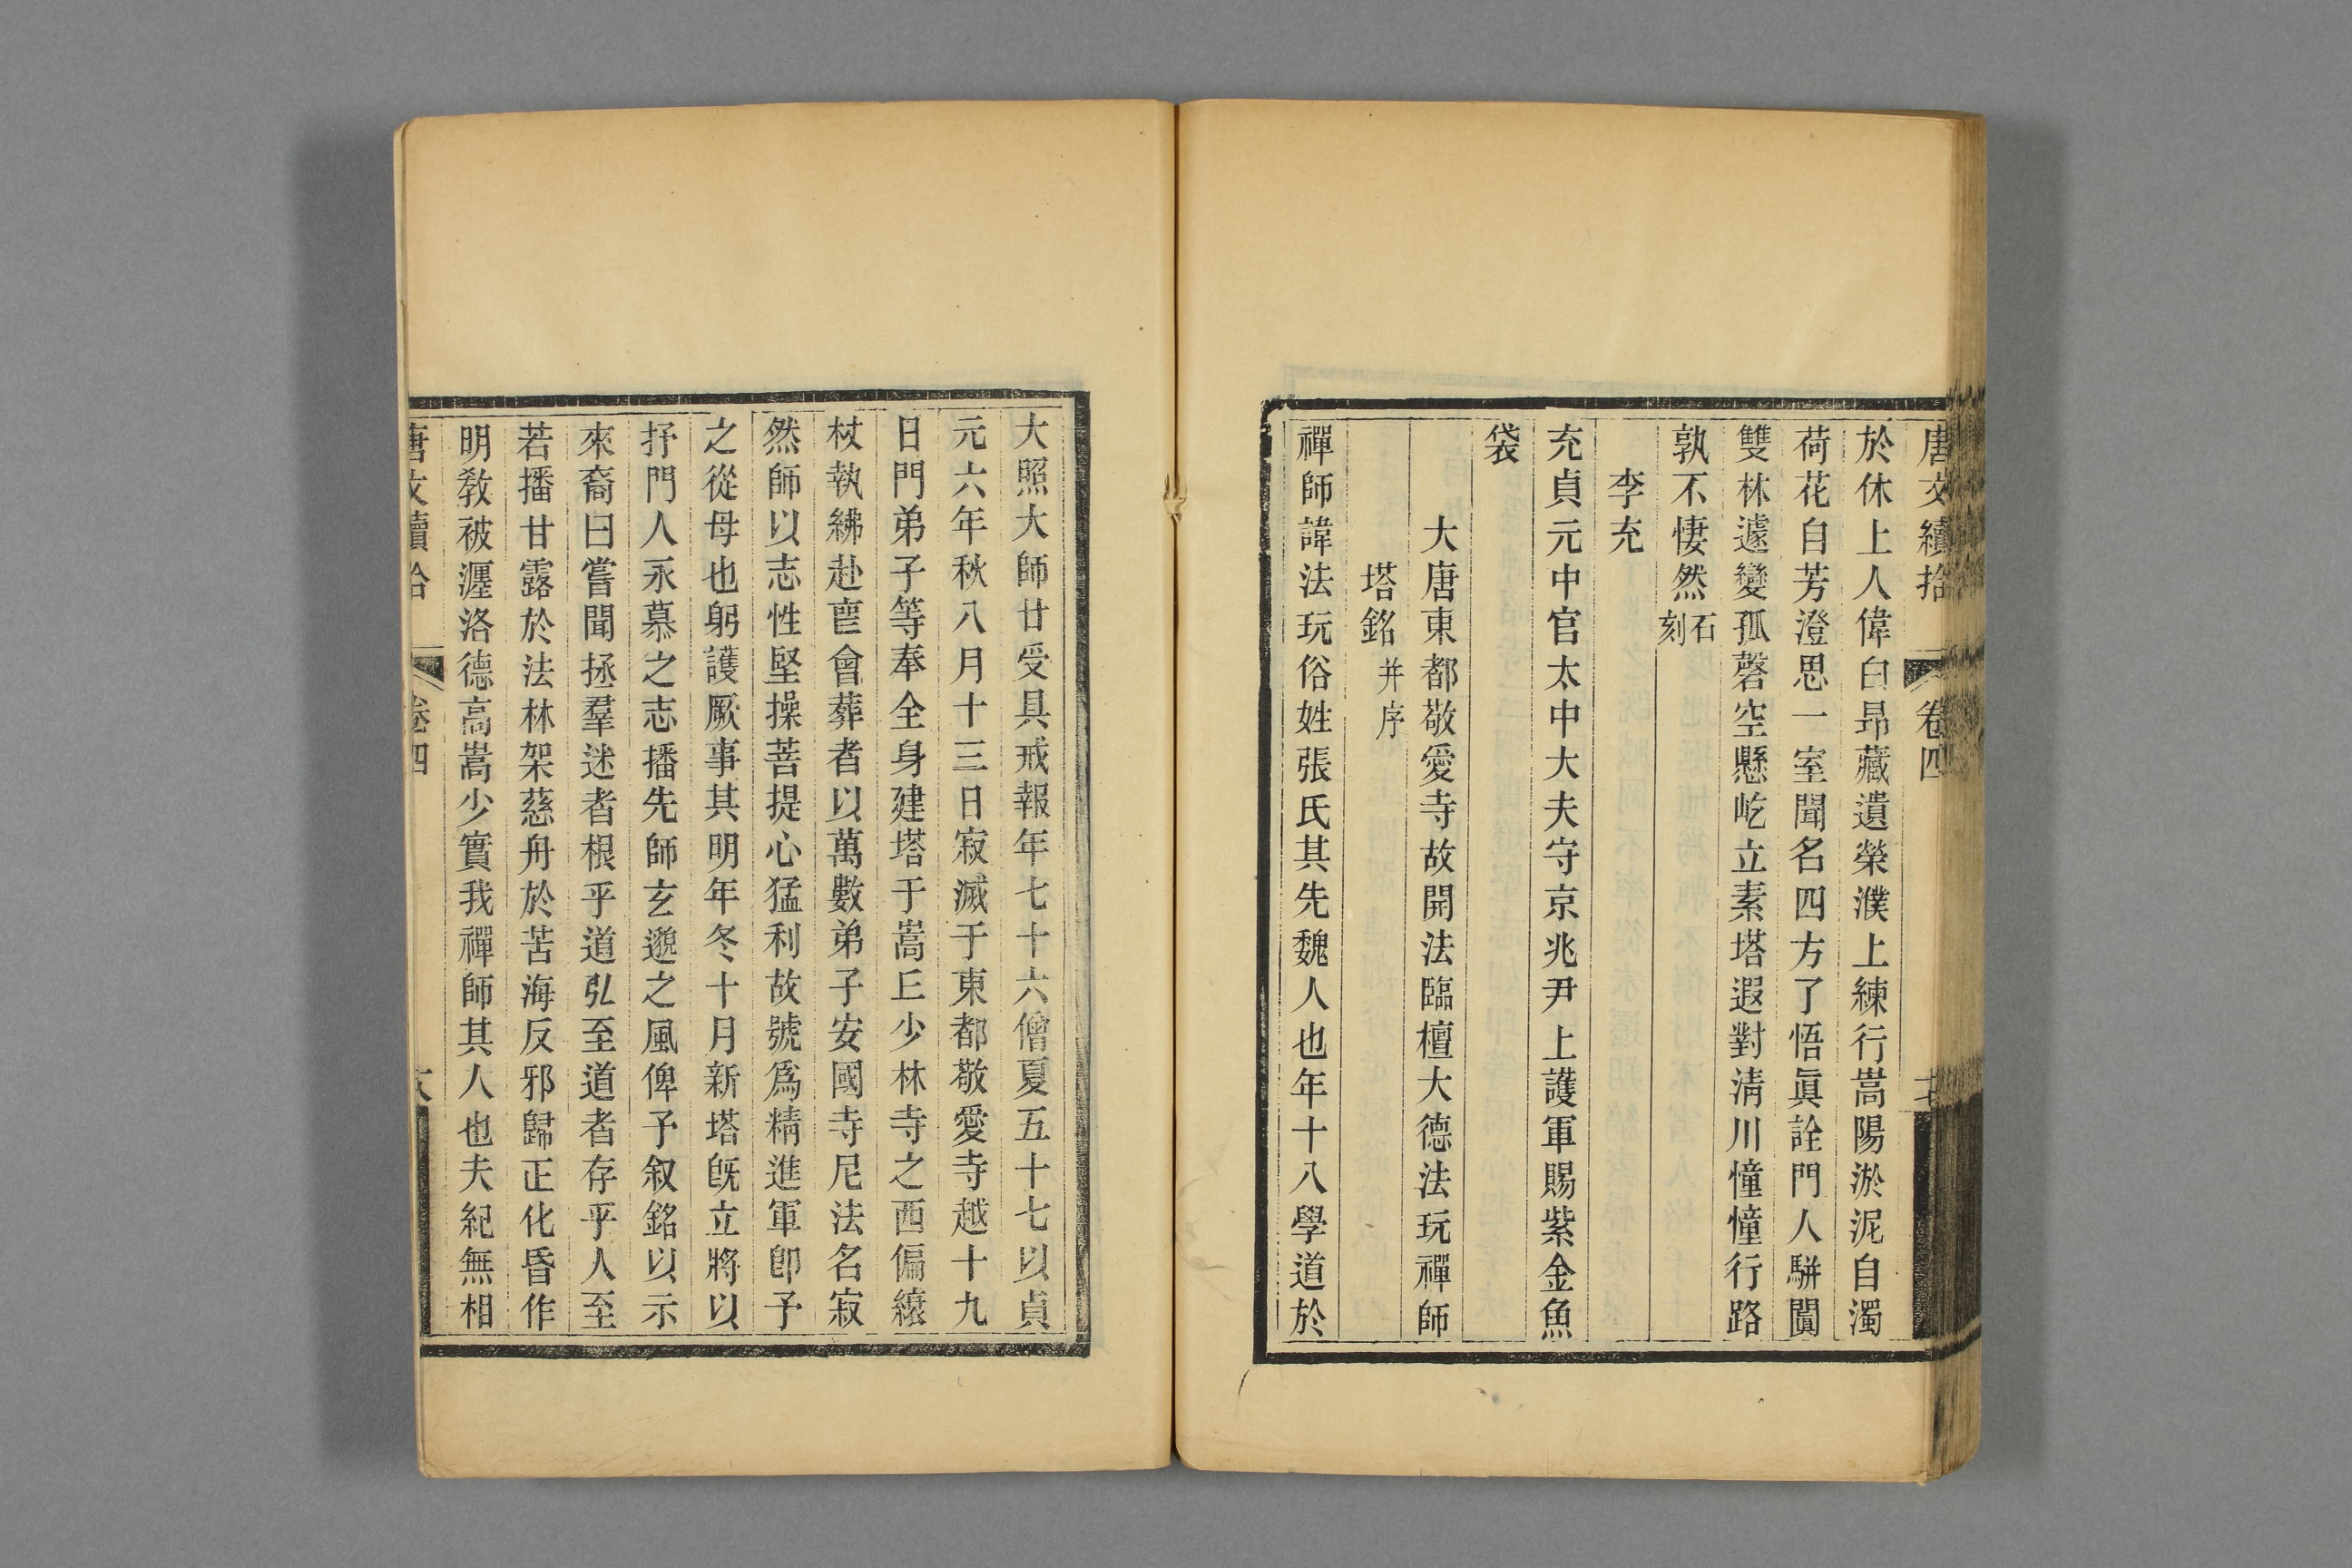 唐文續拾 卷四
於休上人偉白昻藏遺榮濮上練行嵩陽淤泥自濁
荷花自芳澄思一室聞名四方了悟眞詮門人駢闐
雙林遽變孤磬空懸屹立素塔遐對淸川憧憧行路
孰不悽然石刻
李充
充貞元中官太中大夫守京兆尹上護軍賜紫金魚
袋
大唐東都敬愛寺故開法臨檀大德法玩禪師
塔銘并序
禪師諱法玩俗姓張氏其先魏人也年十八學道於
大照大師廿受具戒報年七十六僧夏五十七以貞
元六年秋八月十三日寂滅于東都敬愛寺越十九
日門弟子等奉全身建塔于嵩丘少林寺之西偏縗
杖執紼赴䘮會葬者以萬數弟子安國寺尼法名寂
然師以志性堅操菩提心猛利故號爲精進軍卽予
之從母也躬護厥事其明年冬十月新塔旣立將以
抒門人永慕之志播先師玄邈之風俾予叙銘以示
來裔曰嘗聞拯羣迷者根乎道弘至道者存乎人至
若播甘露於法林架慈舟於苦海反邪歸正化昏作
明敎被瀍洛德高嵩少實我禪師其人也夫紀無相
唐文續拾 卷四